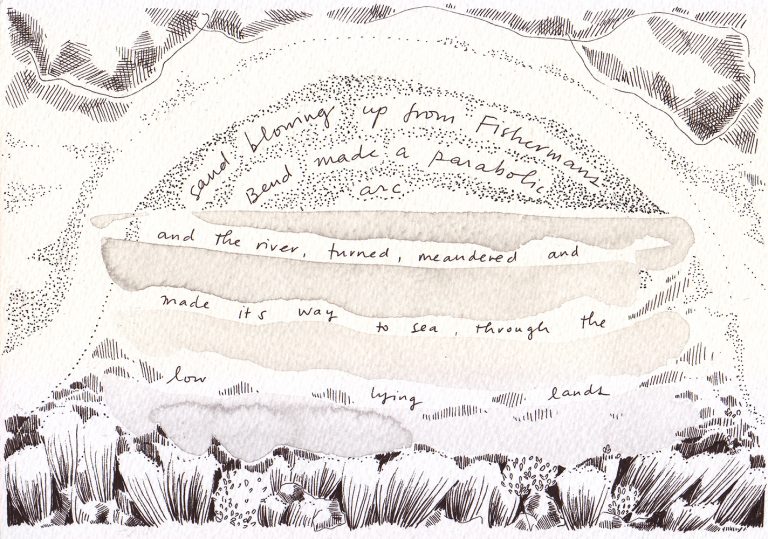 sand blowing up from Fishermans
Bend made a parabolic
arc
and the river, turned, meandered and
made it's way to sea, through the
low lying lands